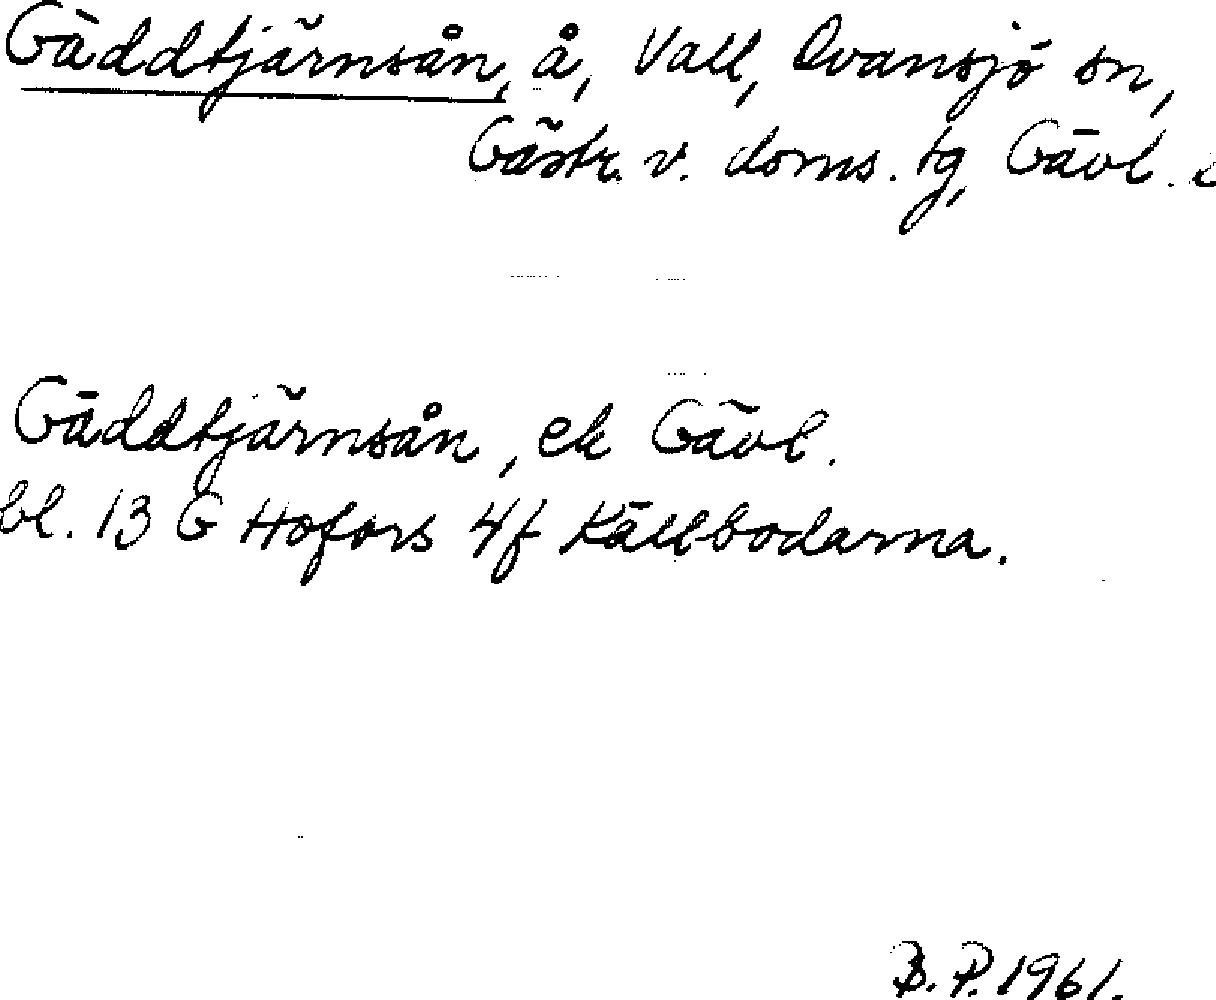 Gäddtjärnsån, å, Vall, Ovansjö sn,
Gästr. v. doms. tg, Gävl.
Gäddtjärnsån, ek Gävl.
bl. 13 G Hofors 4f Källbodarna.
B. P. 1961.